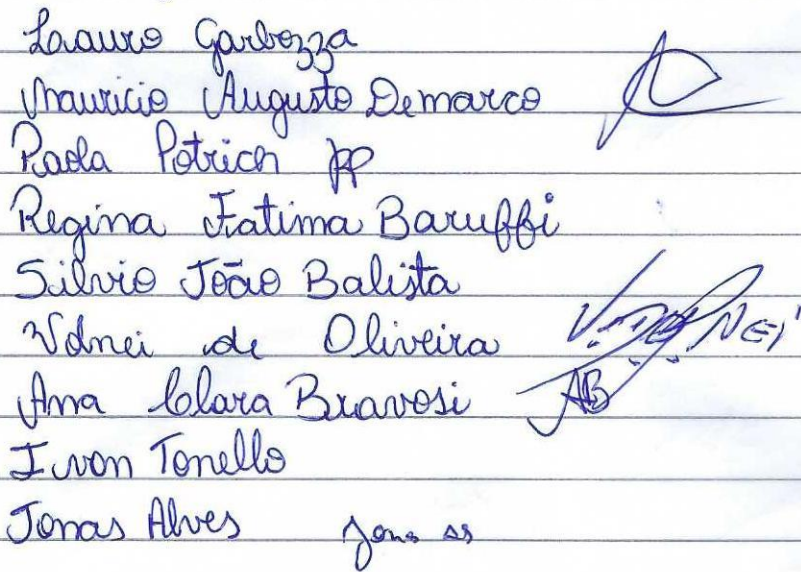 Lauro Garbozza
Mauricio Augusto Demarco
Paola Potrich PP
Regina Fatima Baruffi
Silvio João Balista
Volnei de Oliveira
Ana Clara Bravosi AB
Ivan Tonello
Jonas Alves